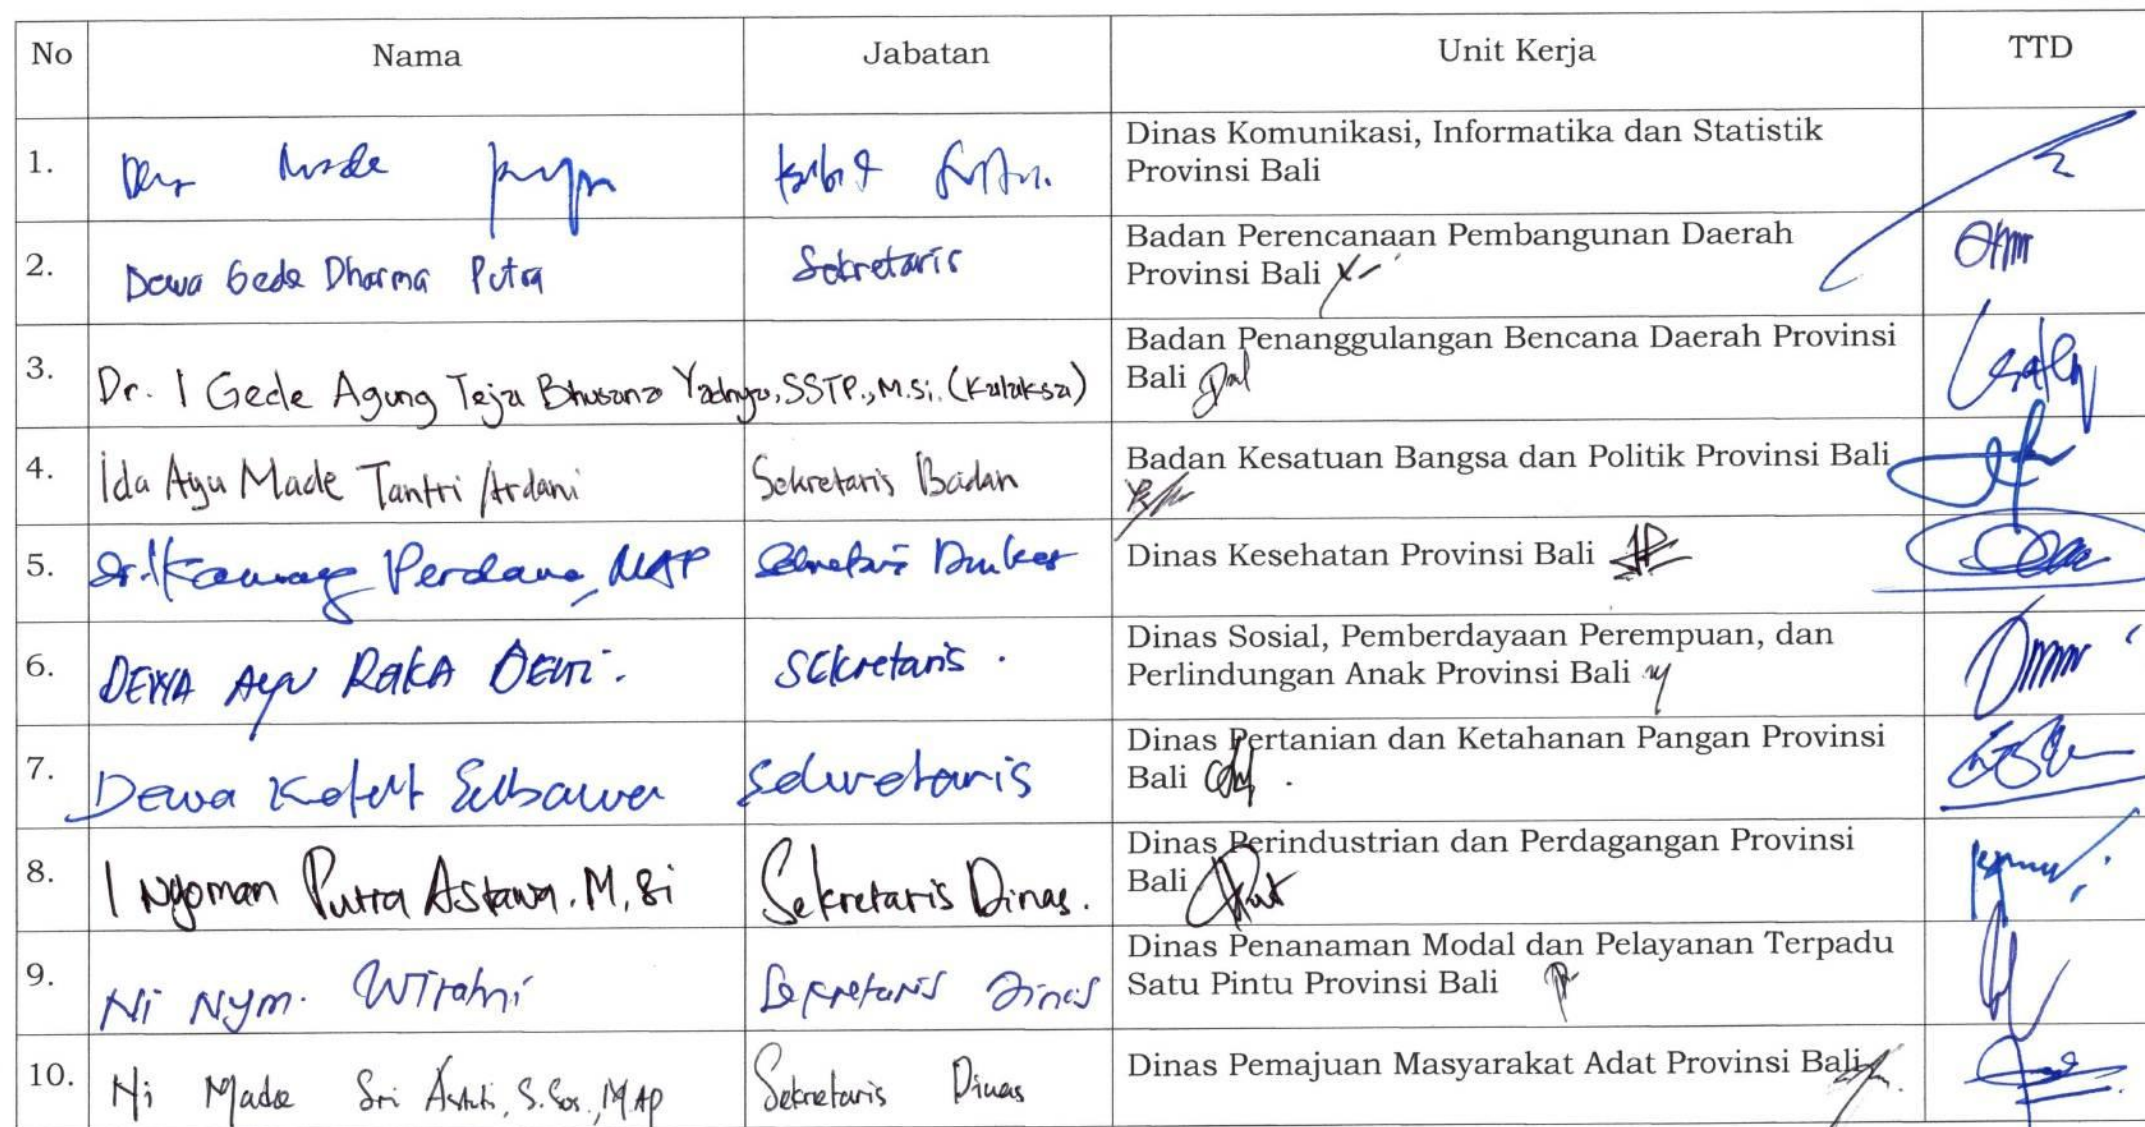 No Nama Jabatan Unit Kerja TTD
1. Made Dinas Komunikasi, Informatika dan Statistik
Provinsi Bali
2. Dewa Gede Dharma Putra Sekretaris Badan Perencanaan Pembangunan Daerah
Provinsi Bali
3. Dr. I Gede Agung Teja Bhusana Yadnya, SSTP., M.Si. (Kalaksa) Badan Penanggulangan Bencana Daerah Provinsi
Bali
4. Ida Ayu Made Tantri Ardani Sekretaris Badan Badan Kesatuan Bangsa dan Politik Provinsi Bali
5. dr. Perdana, MAP Sekretaris Dinas Kesehatan Provinsi Bali
6. DEWA Ayu RAKA DEWI. Sekretaris. Dinas Sosial, Pemberdayaan Perempuan, dan
Perlindungan Anak Provinsi Bali
7. Dewa Ketut Sekretaris Dinas Pertanian dan Ketahanan Pangan Provinsi
Bali
8. I Nyoman Putra Astawa. M,Si Sekretaris Dinas. Dinas Perindustrian dan Perdagangan Provinsi
Bali
9. Ni Nym. Wiratni Sekretaris Dinas Dinas Penanaman Modal dan Pelayanan Terpadu
Satu Pintu Provinsi Bali
10. Ni Made Sri Astuti, S.Sos., M.AP Sekretaris Dinas Dinas Pemajuan Masyarakat Adat Provinsi Bali